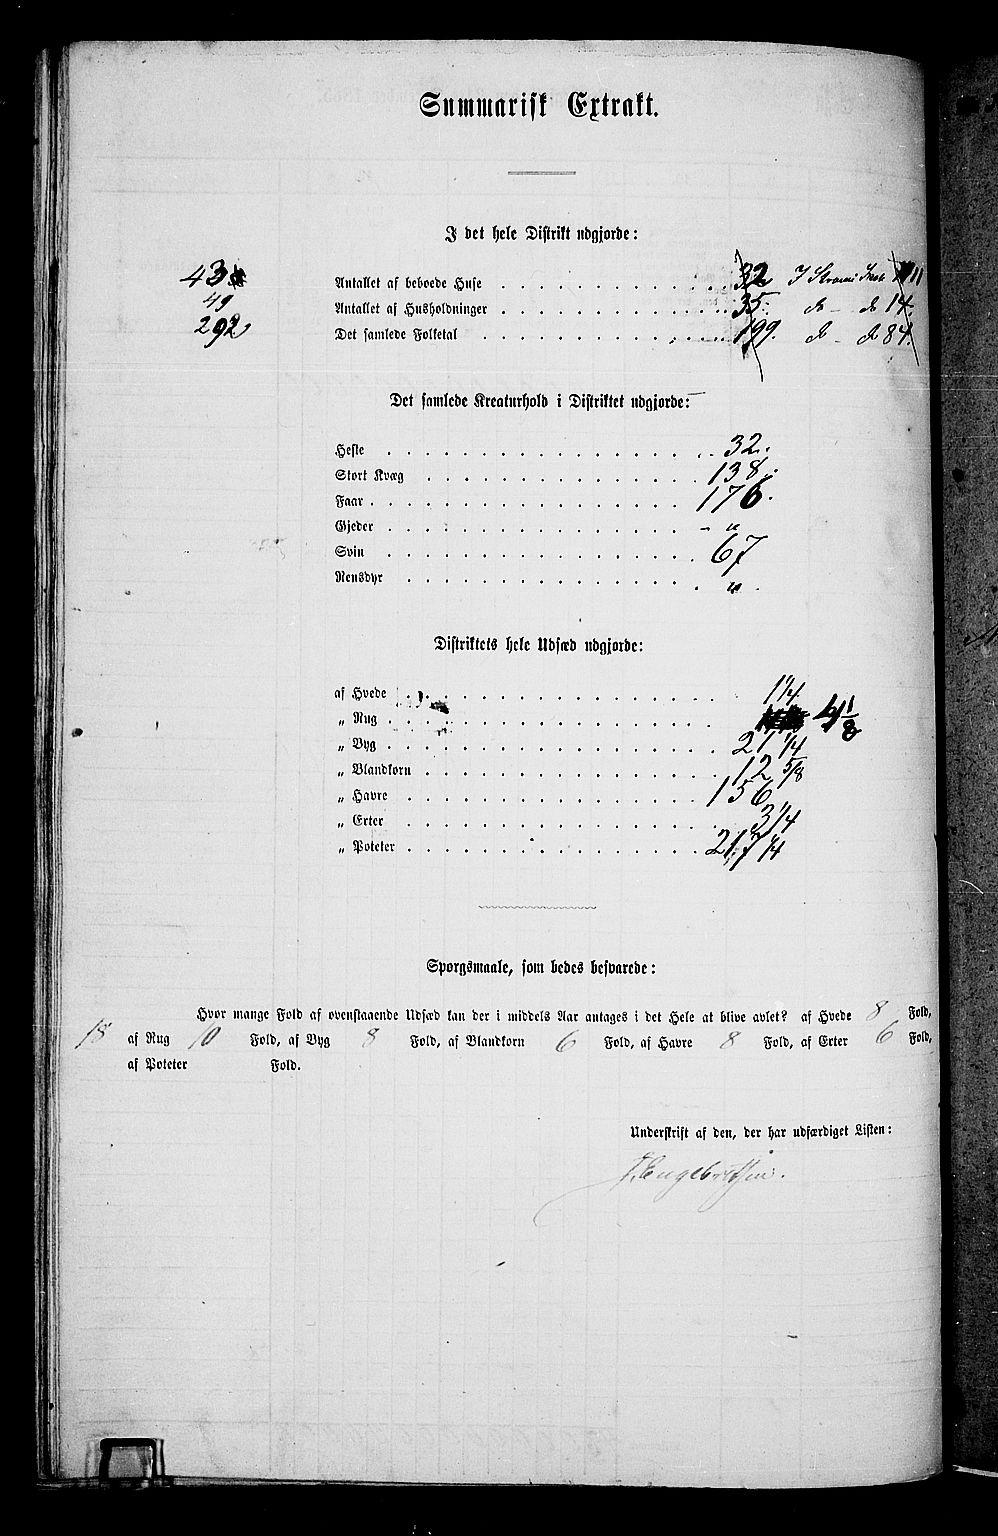 Summarisk Extrakt.
I det hele Distrikt udgjorde:
43 Antallet af beboede Huse 32 I 11
49 Antallet af Husholdninger 35. do - do 14.
292 Det samlede Folketal 199. do - do 84.
Det samlede Kreaturhold i Distriktet udgjorde:
Heste 32.
Stort Kvæg 138.
Faar 176.
Gjeder - "
Svin 67
Rensdyr "
Distriktets hele Udsæd udgjorde:
af Hvede 1 1/4
„ Rug 4 1/8
„ Byg 21 1/4
„ Blandkorn 12 5/8
„ Havre 156
„ Erter 3 1/4
„ Poteter 217 1/4
Sporgsmaale, som bedes besvarede:
Hvor mange Fold af ovenstaaende Udsæd kan der i middels Aar antages i det Hele at blive avlet? af Hvede 8 Fold,
18 af Rug 10 Fold, af Byg 8 Fold, af Blandkorn 6 Fold, af Havre 8 Fold, af Erter 6 Fold,
af Poteter Fold.
Underskrift af den, der har udfærdiget Listen: